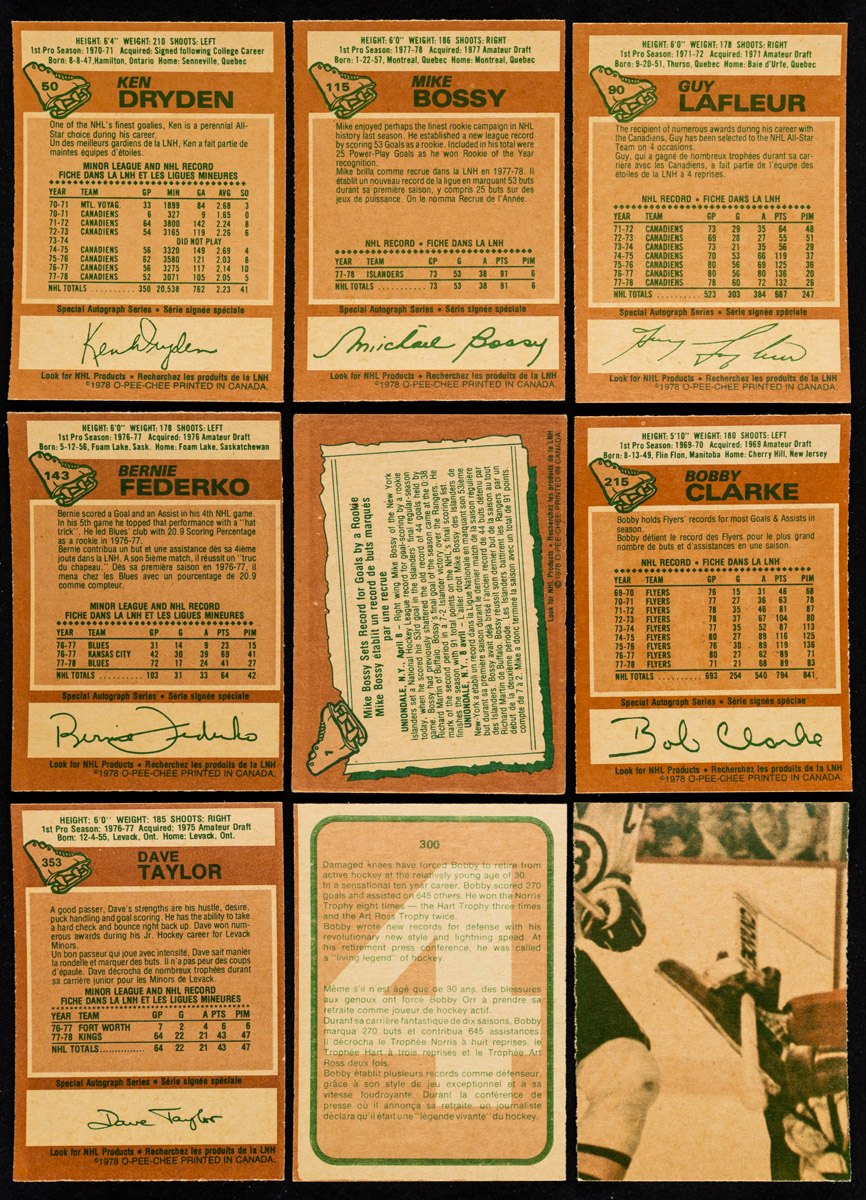 HEIGHT: 6'4" WEIGHT: 210 SHOOTS: LEFT
1st Pro Season: 1970-71 Acquired: Signed following College Career
Born: 8-8-47, Hamilton, Ontario Home: Senneville, Quebec
50
KEN
DRYDEN
One of the NHL's finest goalies, Ken is a perennial All-
Star choice during his career.
Un des meilleurs gardiens de la LNH, Ken a fait partie de
maintes équipes d'étoiles.
MINOR LEAGUE AND NHL RECORD
FICHE DANS LA LNH ET LES LIGUES MINEURES
YEAR TEAM GP MIN GA AVG SO
70-71 MTL. VOYAG. 33 1899 84 2.68 3
70-71 CANADIENS 6 327 9 1.65 0
71-72 CANADIENS 64 3800 142 2.24 8
72-73 CANADIENS 54 3165 119 2.26 6
73-74 DID NOT PLAY
74-75 CANADIENS 56 3320 149 2.69 4
75-76 CANADIENS 62 3580 121 2.03 8
76-77 CANADIENS 56 3275 117 2.14 10
77-78 CANADIENS 52 3071 105 2.05 5
NHL TOTALS 350 20,538 762 2.23 41
Special Autograph Series • Série signée spéciale
Ken Dryden
Look for NHL Products • Recherchez les produits de la LNH
©1978 O-PEE-CHEE PRINTED IN CANADA.
HEIGHT: 6'0" WEIGHT: 186 SHOOTS: RIGHT
1st Pro Season: 1977-78 Acquired: 1977 Amateur Draft
Born: 1-22-57, Montreal, Quebec Home: Montreal, Quebec
115
MIKE
BOSSY
Mike enjoyed perhaps the finest rookie campaign in NHL
history last season. He established a new league record
by scoring 53 Goals as a rookie. Included in his total were
25 Power-Play Goals as he won Rookie of the Year
recognition.
Mike brilla comme recrue dans la LNH en 1977-78. Il
établit un nouveau record de la ligue en marquant 53 buts
durant sa première saison, y compris 25 buts sur des
jeux de puissance. On le nomma Recrue de l'Année.
NHL RECORD • FICHE DANS LA LNH
YEAR TEAM GP G A PTS PIM
77-78 ISLANDERS 73 53 38 91 6
NHL TOTALS 73 53 38 91 6
Special Autograph Series • Série signée spéciale
Michael Bossy
Look for NHL Products • Recherchez les produits de la LNH
©1978 O-PEE-CHEE PRINTED IN CANADA.
HEIGHT: 6'0" WEIGHT: 178 SHOOTS: RIGHT
1st Pro Season: 1971-72 Acquired: 1971 Amateur Draft
Born: 9-20-51, Thurso, Quebec Home: Baie d'Urfe, Quebec
90
GUY
LAFLEUR
The recipient of numerous awards during his career with
the Canadiens, Guy has been selected to the NHL All-Star
Team on 4 occasions.
Guy, qui a gagné de nombreux trophées durant sa car-
rière avec les Canadiens, a fait partie de l'équipe des
étoiles de la LNH à 4 reprises.
NHL RECORD • FICHE DANS LA LNH
YEAR TEAM GP G A PTS PIM
71-72 CANADIENS 73 29 35 64 48
72-73 CANADIENS 69 28 27 55 51
73-74 CANADIENS 73 21 35 56 29
74-75 CANADIENS 70 53 66 119 37
75-76 CANADIENS 80 56 69 125 36
76-77 CANADIENS 80 56 80 136 20
77-78 CANADIENS 78 60 72 132 26
NHL TOTALS 523 303 384 687 247
Special Autograph Series • Série signée spéciale
Guy Lafleur
Look for NHL Products • Recherchez les produits de la LNH
©1978 O-PEE-CHEE PRINTED IN CANADA.
HEIGHT: 6'0" WEIGHT: 178 SHOOTS: LEFT
1st Pro Season: 1976-77 Acquired: 1976 Amateur Draft
Born: 5-12-56, Foam Lake, Sask. Home: Foam Lake, Saskatchewan
143
BERNIE
FEDERKO
Bernie scored a Goal and an Assist in his 4th NHL game.
In his 5th game he topped that performance with a "hat
trick". He led Blues' club with 20.9 Scoring Percentage
as a rookie in 1976-77.
Bernie contribua un but et une assistance dès sa 4ème
joute dans la LNH. A son 5ième match, il réussit un "truc
du chapeau." Dès sa première saison en 1976-77, il
mena chez les Blues avec un pourcentage de 20.9
comme compteur.
MINOR LEAGUE AND NHL RECORD
FICHE DANS LA LNH ET LES LIGUES MINEURES
YEAR TEAM GP G A PTS PIM
76-77 BLUES 31 14 9 23 15
76-77 KANSAS CITY 42 30 39 69 41
77-78 BLUES 72 17 24 41 27
NHL TOTALS 103 31 33 64 42
Special Autograph Series • Série signée spéciale
Bernie Federko
Look for NHL Products • Recherchez les produits de la LNH
©1978 O-PEE-CHEE PRINTED IN CANADA.
Mike Bossy Sets Record for Goals by a Rookie
Mike Bossy établit un record de buts marqués
par une recrue
UNIONDALE, N.Y., April 8 – Right wing Mike Bossy of the New York
Islanders set a National Hockey League record for goal-scoring by a rookie
today, when he scored his 53rd goal in the Islanders' final regular-season
game. Bossy had previously shattered the old record of 44 goals held by
Richard Martin of Buffalo. Bossy's final goal of the season came at the 0:38
mark of the second period in a 7-2 Islander victory over the Rangers. He
finishes the season with 91 total points on the NHL's final scoring list.
UNIONDALE, N.Y., 8 avril – L'ailier droit Mike Bossy des Islanders de
New-York a établi un record dans la Ligue Nationale en marquant son 53ième
but durant sa première saison durant le dernier match de la saison régulière
des Islanders. Bossy avait déjà brisé l'ancien record de 44 buts détenu par
Richard Martin de Buffalo. Bossy réussit son dernier but de la saison au tout
début de la deuxième période. Les Islanders battirent les Rangers par un
compte de 7 à 2. Mike a donc terminé la saison avec un total de 91 points.
Look for NHL Products • Recherchez les produits de la LNH
©1978 O-PEE-CHEE PRINTED IN CANADA.
HEIGHT: 5'10" WEIGHT: 180 SHOOTS: LEFT
1st Pro Season: 1969-70 Acquired: 1969 Amateur Draft
Born: 8-13-49, Flin Flon, Manitoba Home: Cherry Hill, New Jersey
215
BOBBY
CLARKE
Bobby holds Flyers' records for most Goals & Assists in
season.
Bobby détient le record des Flyers pour le plus grand
nombre de buts et d'assistances en une saison.
NHL RECORD • FICHE DANS LA LNH
YEAR TEAM GP G A PTS PIM
69-70 FLYERS 76 15 31 46 68
70-71 FLYERS 77 27 36 63 78
71-72 FLYERS 78 35 46 81 87
72-73 FLYERS 78 37 67 104 80
73-74 FLYERS 77 35 52 87 113
74-75 FLYERS 80 27 89 116 125
75-76 FLYERS 76 30 89 119 136
76-77 FLYERS 80 27 62 89 71
77-78 FLYERS 71 21 68 89 83
NHL TOTALS 693 254 540 794 841
Special Autograph Series • Série signée spéciale
Bob Clarke
Look for NHL Products • Recherchez les produits de la LNH
©1978 O-PEE-CHEE PRINTED IN CANADA.
HEIGHT: 6'0" WEIGHT: 185 SHOOTS: RIGHT
1st Pro Season: 1976-77 Acquired: 1975 Amateur Draft
Born: 12-4-55, Levack, Ont. Home: Levack, Ont.
353
DAVE
TAYLOR
A good passer, Dave's strengths are his hustle, desire,
puck handling and goal scoring. He has the ability to take
a hard check and bounce right back up. Dave won num-
erous awards during his Jr. Hockey career for Levack
Minors.
Un bon passeur qui joue avec intensité, Dave sait manier
la rondelle et marquer des buts. Il n'a pas peur des coups
d'épaule. Dave décrocha de nombreux trophées durant
sa carrière junior pour les Minors de Levack.
MINOR LEAGUE AND NHL RECORD
FICHE DANS LA LNH ET LES LIGUES MINEURES
YEAR TEAM GP G A PTS PIM
76-77 FORT WORTH 7 2 4 6 6
77-78 KINGS 64 22 21 43 47
NHL TOTALS 64 22 21 43 47
Special Autograph Series • Série signée spéciale
Dave Taylor
Look for NHL Products • Recherchez les produits de la LNH
©1978 O-PEE-CHEE PRINTED IN CANADA.
300
4
Damaged knees have forced Bobby to retire from
active hockey at the relatively young age of 30.
In a sensational ten year career, Bobby scored 270
goals and assisted on 645 others. He won the Norris
Trophy eight times — the Hart Trophy three times
and the Art Ross Trophy twice.
Bobby wrote new records for defense with his
revolutionary new style and lightning speed. At
his retirement press conference, he was called
a "living legend" of hockey.
Même s'il n'est âgé que de 30 ans, des blessures
aux genoux ont forcé Bobby Orr à prendre sa
retraite comme joueur de hockey actif.
Durant sa carrière fantastique de dix saisons, Bobby
marqua 270 buts et contribua 645 assistances.
Il décrocha le Trophée Norris à huit reprises, le
Trophée Hart à trois reprises et le Trophée Art
Ross deux fois.
Bobby établit plusieurs records comme défenseur,
grâce à son style de jeu exceptionnel et à sa
vitesse foudroyante. Durant la conférence de
presse où il annonça sa retraite, un journaliste
déclara qu'il était une "légende vivante" du hockey.